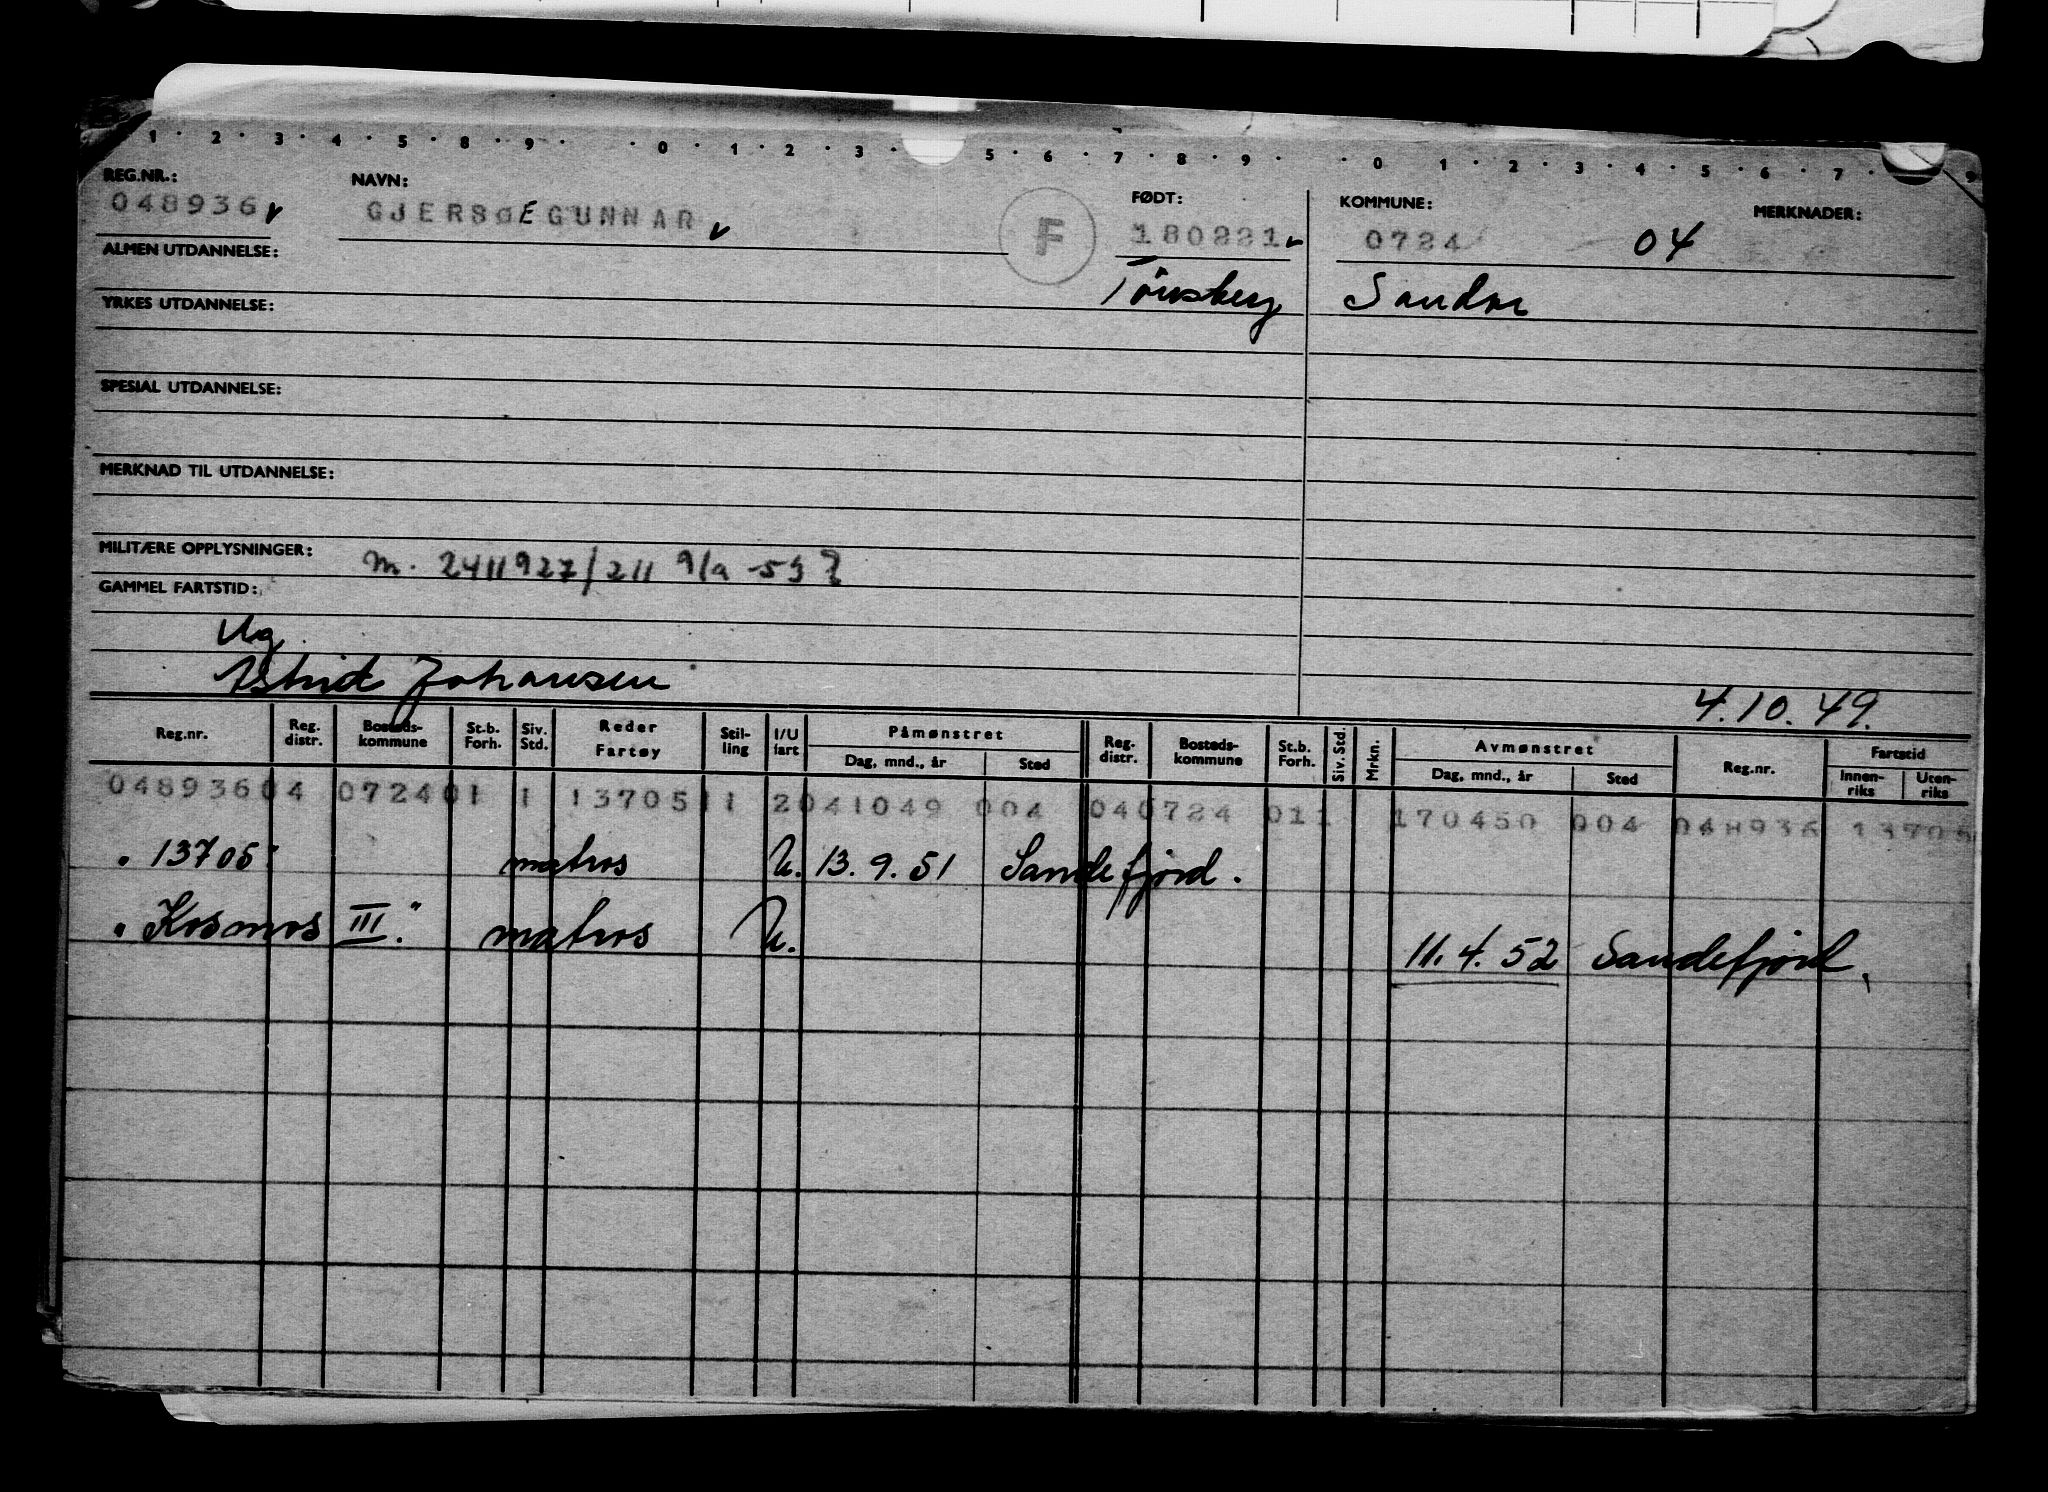 1 · 2 · 3 · 4 · 5 · 8 · 9 · · 0 · 1 · 2 · 3 · 5 · 6 · 7 · 8 · 9 · · 0 1 · 2 · 3 · 4 · 5 · 6 · 7 · 9
REG.NR.: NAVN: FØDT: KOMMUNE: MERKNADER:
048936 GJERSØE GUNNAR F 180221 0724 04
ALMEN UTDANNELSE:
Tønsberg Sandar
YRKES UTDANNELSE:
SPESIAL UTDANNELSE:
MERKNAD TIL UTDANNELSE:
MILITÆRE OPPLYSNINGER: m. 2411927/211
GAMMEL FARTSTID:
Ug
Astrid Johansen
4.10.49.
Reg.nr. Reg. distr. Bosteds- kommune St.b. Forh. Siv. Std. Reder Fartøy Stil- ling I/U fart Påmønstret Dag, mnd., år Sted Reg. distr. Bosteds- kommune St.b. Forh. Siv. Std. Mrkn. Avmønstret Dag, mnd., år Sted Reg.nr. Fartstid Innen- riks Uten- riks
048936 04 0724 01 1 13705 11 2 041049 004 04 0724 01 1 170450 004 048936 13705
" 13705" matros U. 13.9.51 Sandefjord.
" Kosmos III." matros U. 11.4.52 Sandefjord.